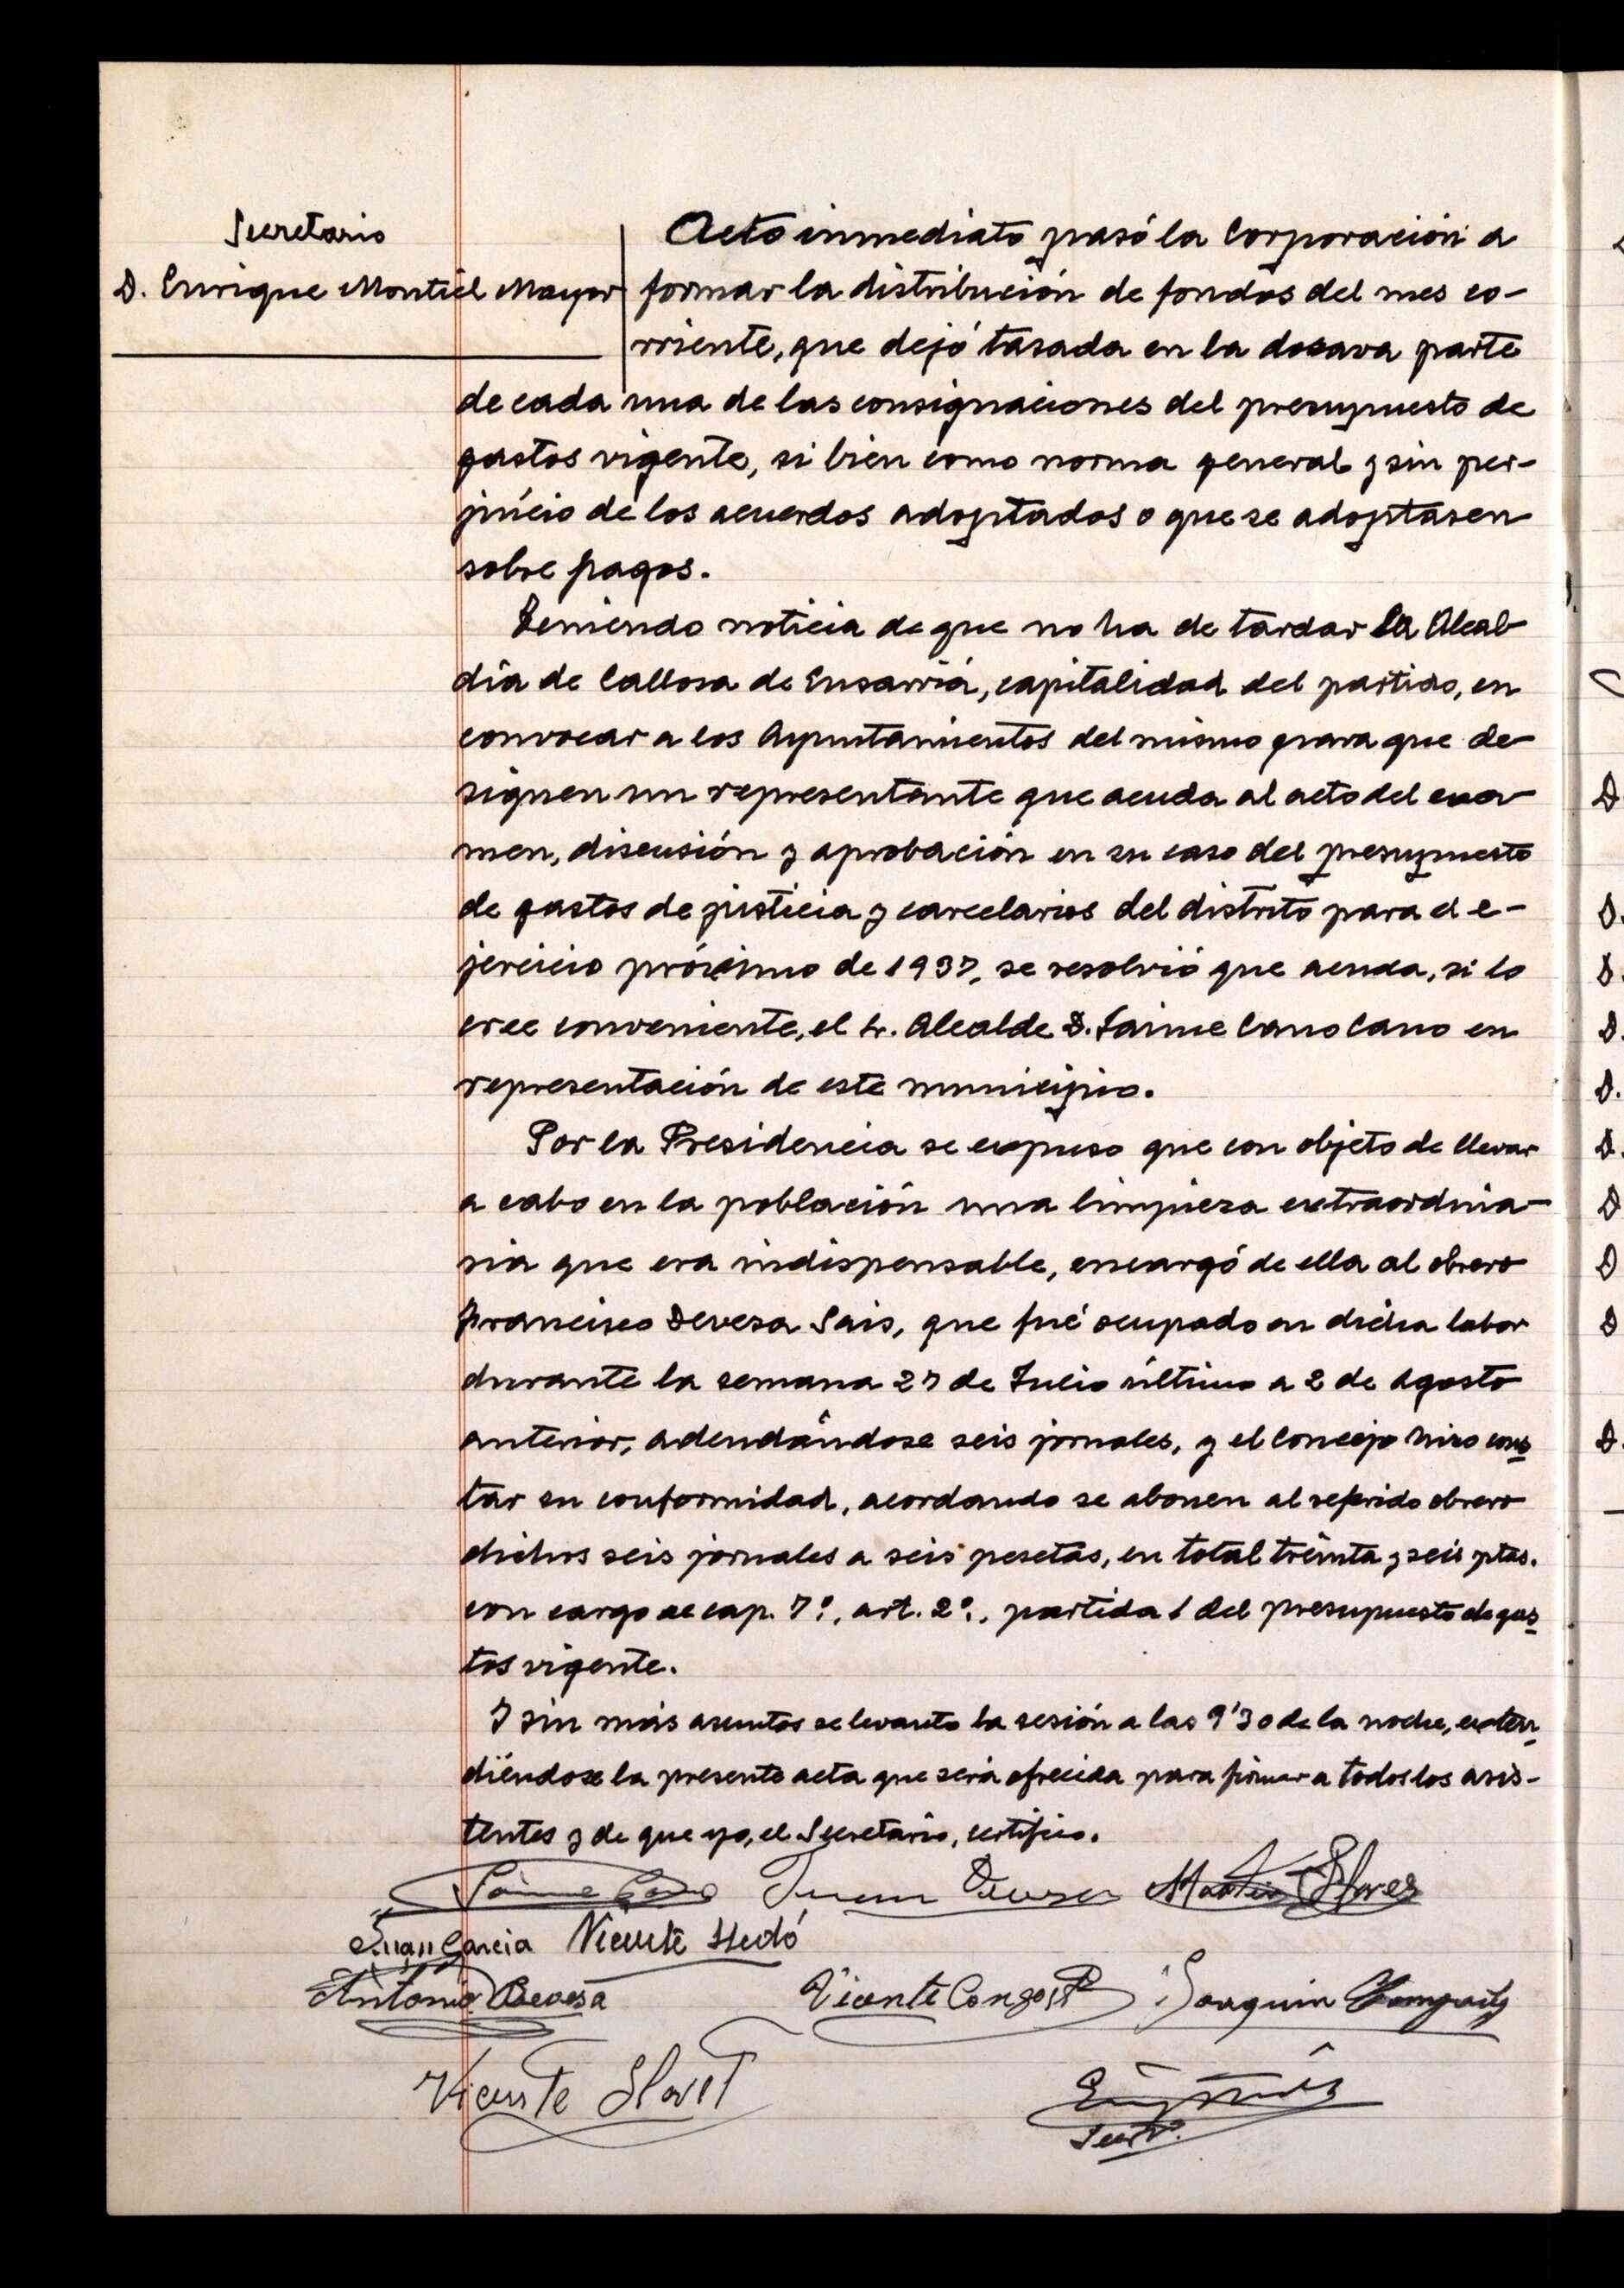 Secretario
D. Enrique Montiel Mayor
Acto inmediato pasó la Corporación a
formar la distribución de fondos del mes co-
rriente, que dejó tasada en la docava parte
de cada una de las consignaciones del presupuesto de
gastos vigente, si bien como norma general y sin per-
juício de los acuerdos adoptados o que se adoptasen
sobre pagos.
Teniendo noticia de que no ha de tardar la Alcal-
día de Callosa de Ensarriá, capitalidad del partido, en
convocar a los Ayuntamientos del mismo para que de-
siguen un representante que acuda al acto del exa-
men, discusión y aprobación en su caso del presupuesto
de gastos de justicia y carcelarios del distrito para el e-
jercicio próximo de 1937, se resolvió que acuda, si lo
cree conveniente, el Sr. Alcalde D. Jaime Cano Cano en
representación de este municipio.
Por la Presidencia se expuso que con objeto de llevar
a cabo en la población una limpieza extraordina-
ria que era indispensable, encargó de ella al obrero
Francisco Devesa Sais, que fué ocupado en dicha labor
durante la semana 27 de Julio último a 2 de Agosto
anterior, adeudándose seis jornales, y el Concejo hizo cons
tar su conformidad, acordando se abonen al referido obrero
dichos seis jornales a seis pesetas, en total treinta y seis ptas.
con cargo al cap. 7º, art. 2º, partida 1 del presupuesto de gas
tos vigente.
Y sin más asuntos se levanto la sesión a las 9'30 de la noche, exten
diéndose la presente acta que será ofrecida para firmar a todos los asis-
tentes y de que yo, el Secretario, certifico.
Jaime Cano Juan Devesa Martin Llores
Juan Garcia Vicente Lledó
Antonio Devesa Vicente Congost Joaquin
Vicente Lloret
Secrº.